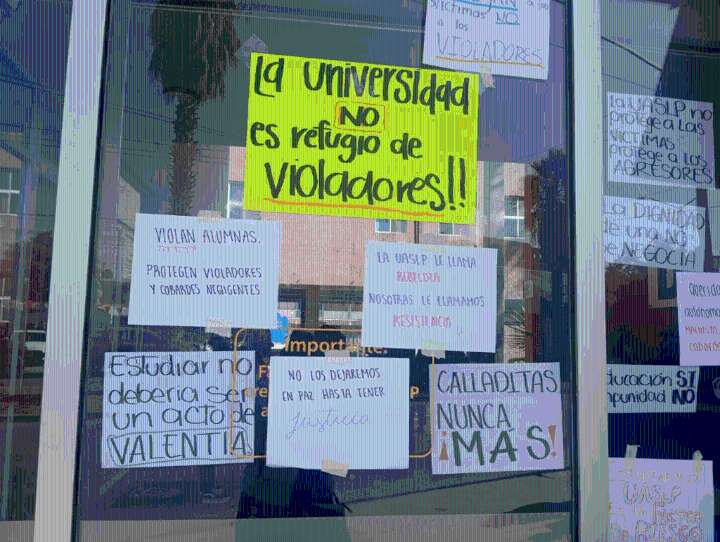 víctimas NO
a los
VIOLADORES
La Universidad
NO
es refugio de
Violadores!!
La UASLP no
protege a LAS
VICTIMAS
protege a los
AGRESORES
La DIGNIDAD
de una NO
se NEGOCIA
VIOLAN ALUMNAS.
PROTEGEN VIOLADORES
Y COBARDES NEGLIGENTES
LA UASLP LE LLAMA
REBELDÍA
NOSOTRAS LE LLAMAMOS
RESISTENCIA
Importante:
Estudiar no
debería ser
un acto de
VALENTÍA
NO LOS DEJAREMOS
EN PAZ HASTA TENER
Justicia
CALLADITAS
NUNCA
¡MÁS!
educación SI
impunidad NO
UASLP